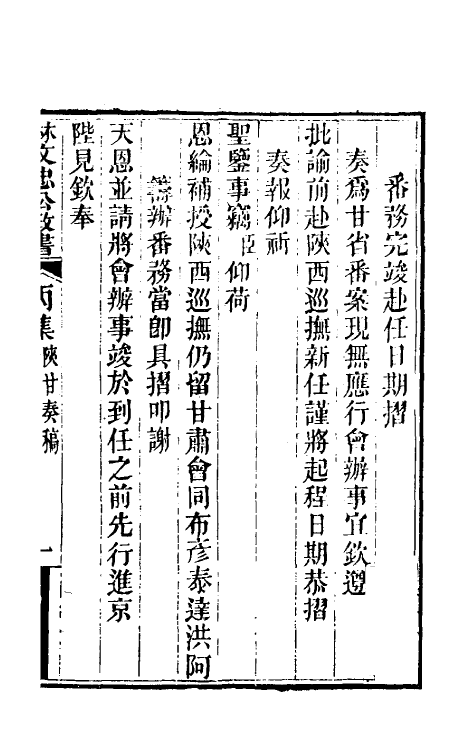 番務完竣赴任日期摺
奏爲甘省番案現無應行會辦事宜欽遵
批諭前赴陝西巡撫新任謹將起程日期恭摺
奏報仰祈
聖鑒事竊臣仰荷
恩綸補授陝西巡撫仍留甘肅會同布彥泰達洪阿
籌辦番務當卽具摺叩謝
天恩並請將會辦事竣於到任之前先行進京
陛見欽奉
林文忠公政書 丙集 陝甘奏稿 一